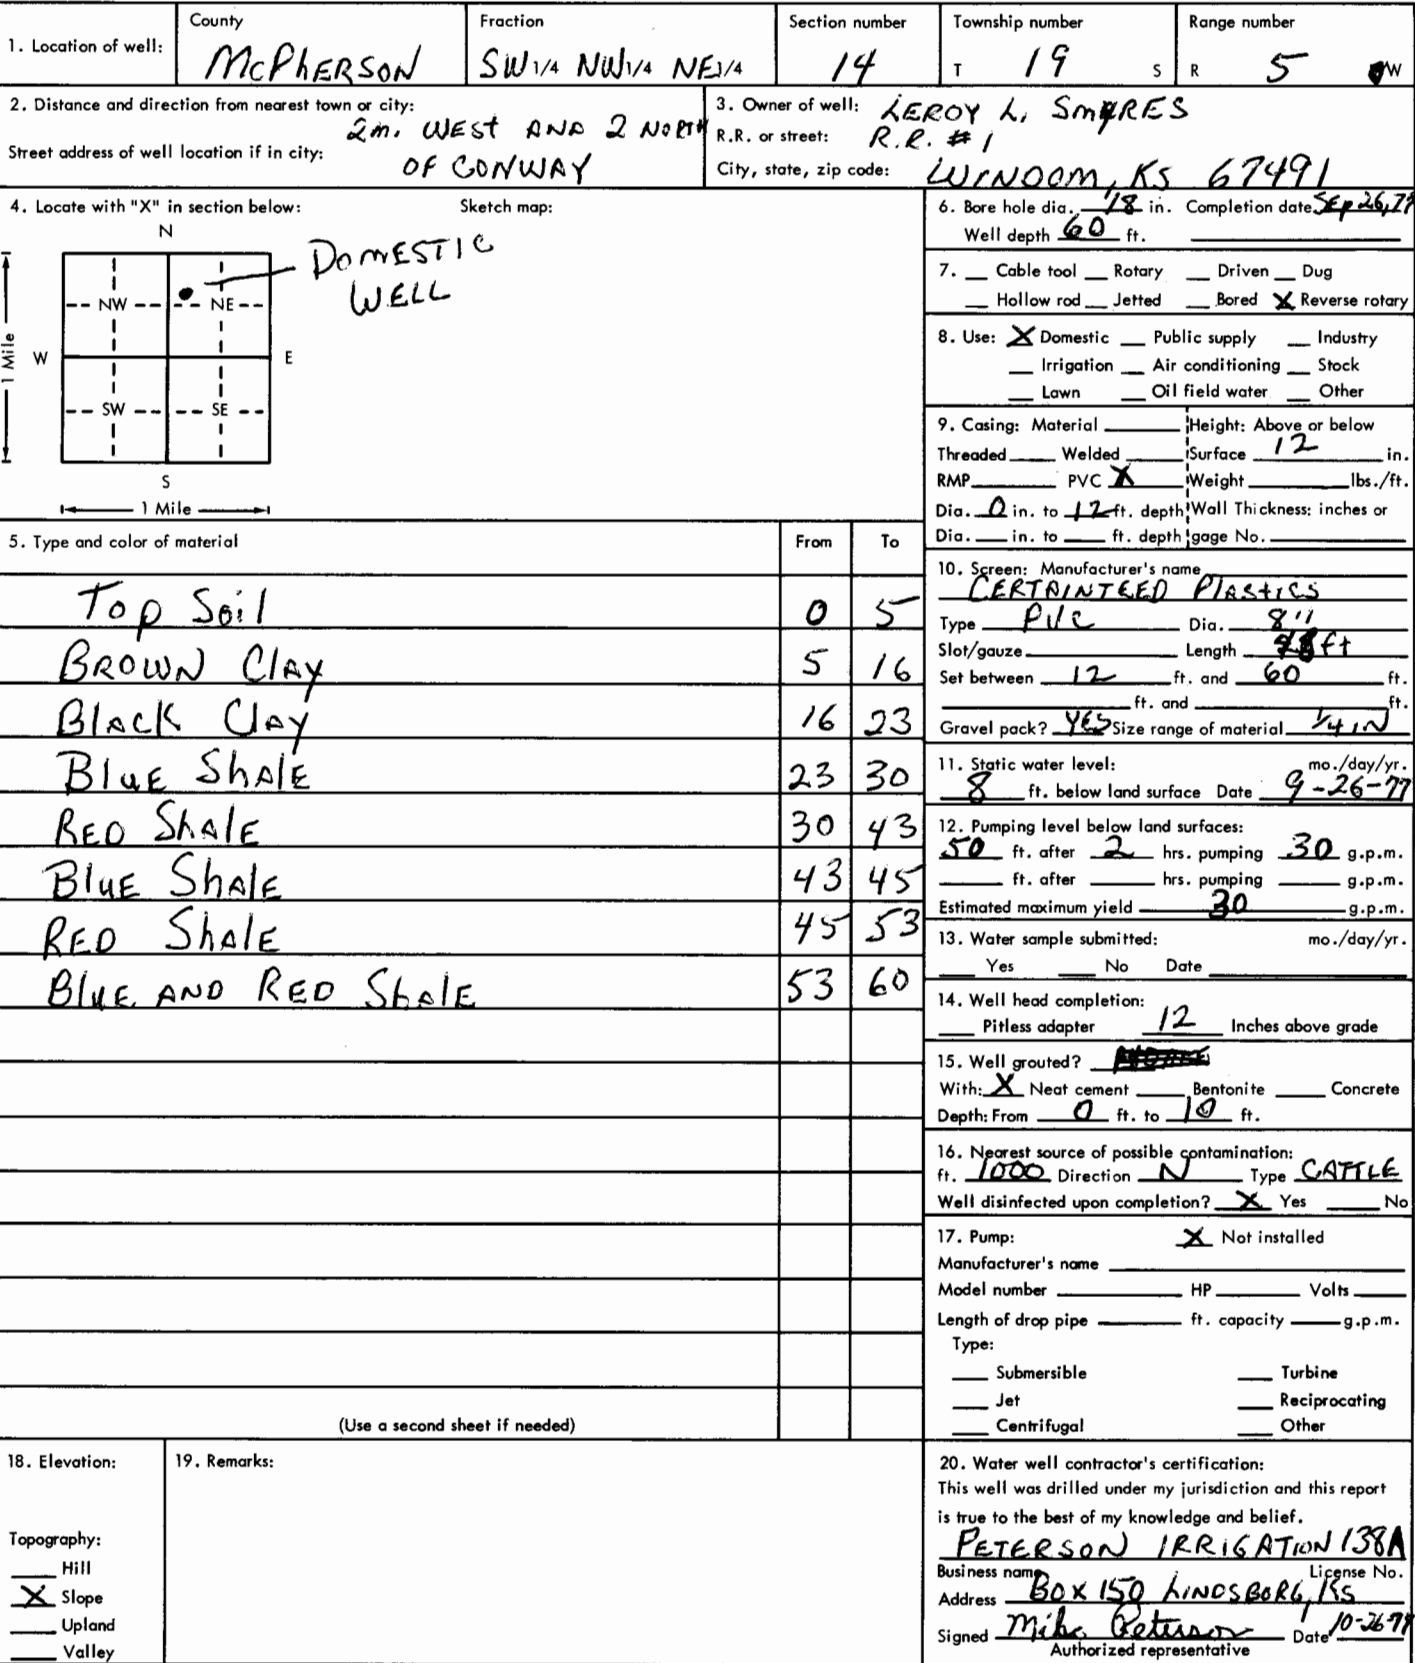 County Fraction Section number Township number Range number
1. Location of well: McPHERSON SW 1/4 NW 1/4 NE 1/4 14 T 19 S R 5 W
2. Distance and direction from nearest town or city: 2m. WEST AND 2 NORTH
Street address of well location if in city: OF CONWAY
3. Owner of well: LEROY L. SMYRES
R.R. or street: R.R. #1
City, state, zip code: WINDOM, KS 67491
4. Locate with "X" in section below: Sketch map:
N
DOMESTIC
WELL
NW NE
W E
1 Mile
SW SE
S
1 Mile
6. Bore hole dia. 18 in. Completion date Sep 26, 77
Well depth 60 ft.
7. __ Cable tool __ Rotary __ Driven __ Dug
__ Hollow rod __ Jetted __ Bored X Reverse rotary
8. Use: X Domestic __ Public supply __ Industry
__ Irrigation __ Air conditioning __ Stock
__ Lawn __ Oil field water __ Other
9. Casing: Material ____ Height: Above or below
Threaded ____ Welded ____ Surface 12 in.
RMP ____ PVC X Weight ____ lbs./ft.
Dia. 0 in. to 12 ft. depth Wall Thickness: inches or
Dia. __ in. to __ ft. depth gage No. ____
5. Type and color of material From To
Top Soil 0 5
BROWN ClAY 5 16
BlAcK ClAY 16 23
BluE ShAlE 23 30
RED ShAlE 30 43
BluE ShAlE 43 45
RED ShAlE 45 53
BluE AND RED ShAlE 53 60
(Use a second sheet if needed)
10. Screen: Manufacturer's name
CERTAINTEED PlAStiCS
Type PVC Dia. 8"
Slot/gauze ____ Length 48 ft
Set between 12 ft. and 60 ft.
____ ft. and ____ ft.
Gravel pack? YES Size range of material 1/4 IN
11. Static water level: mo./day/yr.
8 ft. below land surface Date 9-26-77
12. Pumping level below land surfaces:
50 ft. after 2 hrs. pumping 30 g.p.m.
____ ft. after ____ hrs. pumping ____ g.p.m.
Estimated maximum yield 30 g.p.m.
13. Water sample submitted: mo./day/yr.
__ Yes __ No Date ____
14. Well head completion:
__ Pitless adapter 12 Inches above grade
15. Well grouted?
With: X Neat cement __ Bentonite __ Concrete
Depth: From 0 ft. to 10 ft.
16. Nearest source of possible contamination:
ft. 1000 Direction N Type CATTLE
Well disinfected upon completion? X Yes __ No
17. Pump: X Not installed
Manufacturer's name ____
Model number ____ HP ____ Volts ____
Length of drop pipe ____ ft. capacity ____ g.p.m.
Type:
__ Submersible __ Turbine
__ Jet __ Reciprocating
__ Centrifugal __ Other
18. Elevation: 19. Remarks:
Topography:
__ Hill
X Slope
__ Upland
__ Valley
20. Water well contractor's certification:
This well was drilled under my jurisdiction and this report
is true to the best of my knowledge and belief.
PETERSON IRRIGATION 138A
Business name License No.
Address BOX 150 LINDSBORG, KS
Signed Mike Peterson Date 10-26-77
Authorized representative